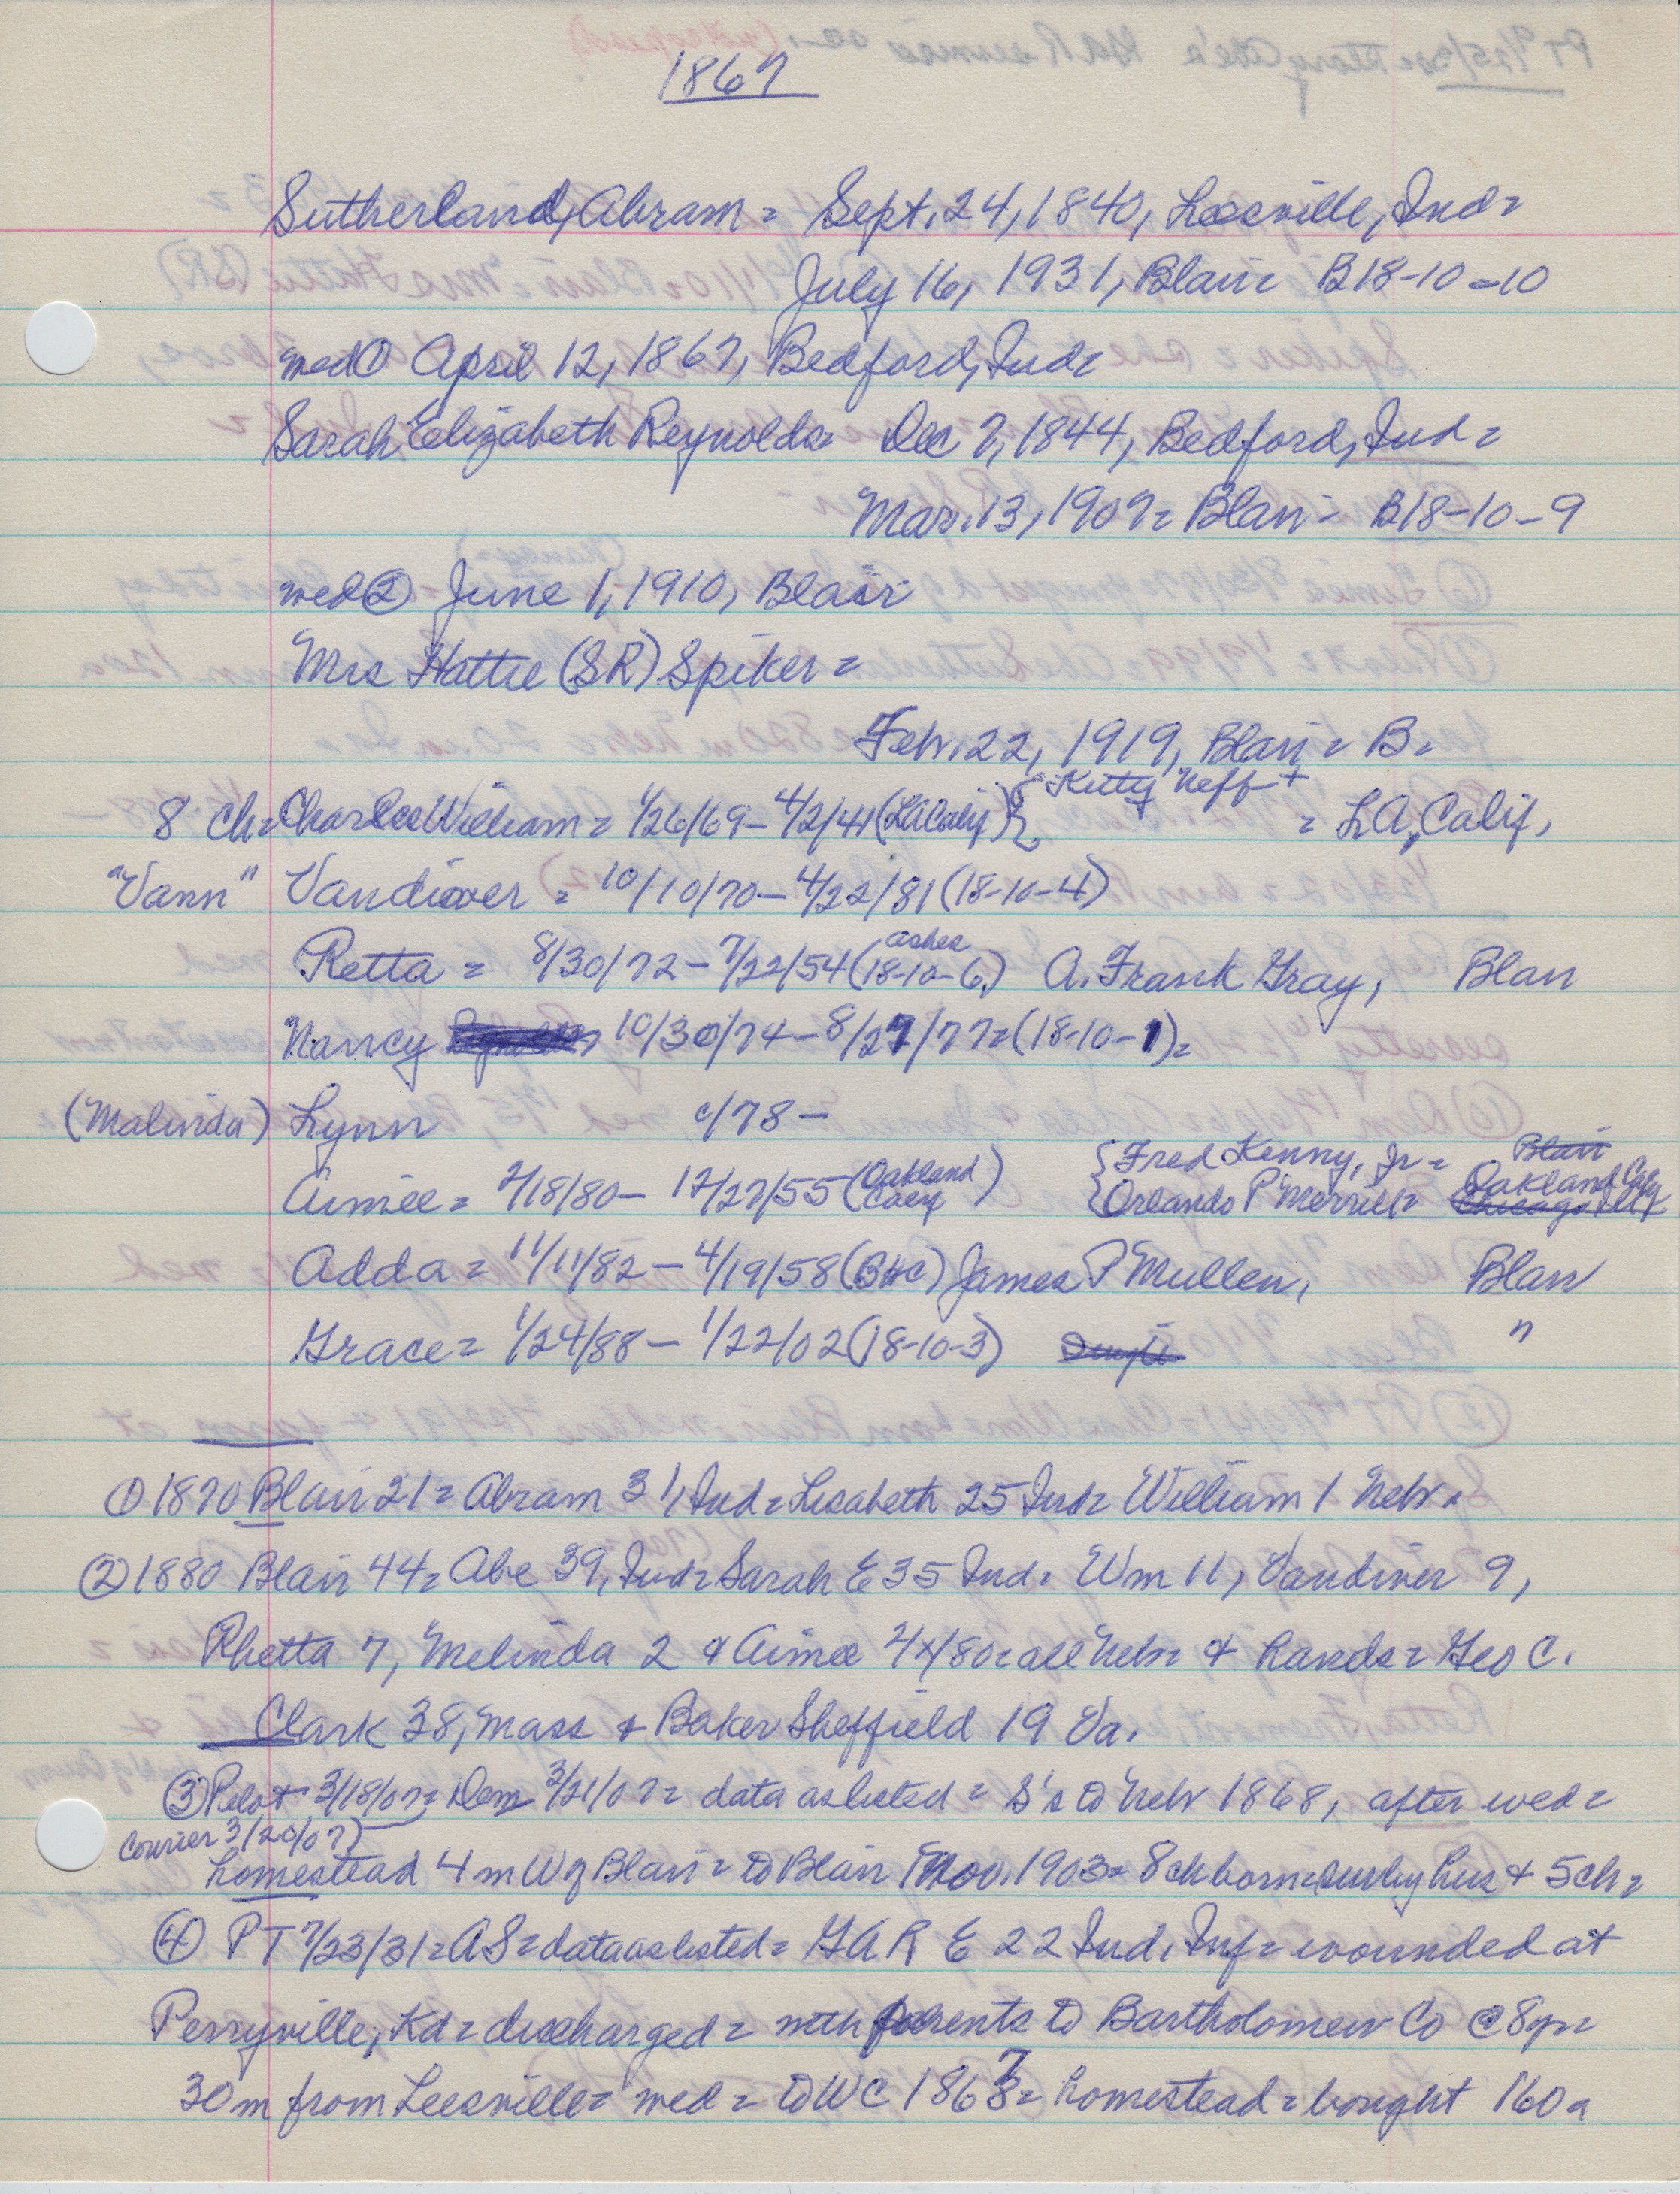 1867
Sutherland, Abram = Sept. 24, 1840, Leesville, Ind =
July 16, 1931, Blair = B18-10-10
wed ① April 12, 1867, Bedford, Ind =
Sarah Elizabeth Reynolds = Dec 7, 1844, Bedford, Ind =
Mar. 13, 1907 = Blair = B18-10-9
wed ② June 1, 1910, Blair
Mrs Hattie (SR) Spiker =
Feb. 22, 1919, Blair = B =
8 ch = Charles William = 1/26/69 - 4/2/41 (LA Calif) { Kitty Neff + = LA, Calif,
"Vann" Vandiver = 10/10/70 - 4/22/81 (18-10-4)
Retta = 8/30/72 - 7/22/54 (ashes 18-10-6) A. Frank Gray, Blair
Nancy 10/30/74 - 8/27/77 = (18-10-1) =
(Malinda) Lynn c/78 -
Aimee = 2/18/80 - 12/27/55 (Oakland Calif) { Fred Kenny, Jr = Blair
Orlando P Merrill = Oakland Calif Chicago
Adda = 11/11/82 - 4/19/58 (BHC) James P Mullen, Blair
Grace = 1/24/88 - 1/22/02 (18-10-3) "
① 1870 Blair 21 = Abram 31, Ind = Lisabeth 25 Ind = William 1 Nebr =
② 1880 Blair 44 = Abe 39, Ind = Sarah E 35 Ind = Wm 11, Vandiver 9,
Rhetta 7, Melinda 2 & Aimee 4x/80 = all Nebr = & hands = Geo C.
Clark 38, Mass & Baker Sheffield 19 Va.
③ Pilot 3/18/07 = Dem 3/21/07 = data as listed = S's to Nebr 1868, after wed =
Courier 3/20/07)
homestead 4 m W of Blair = to Blair Nov. 1903 = 8 ch born = surv by hus + 5 ch =
④ PT 7/23/31 = AS = data as listed = GAR E 22 Ind. Inf = wounded at
Perryville, Kd = discharged = with parents to Bartholomew Co @ 8 yr =
30 m from Leesville = wed = to WC 1867 = homestead = bought 160 a